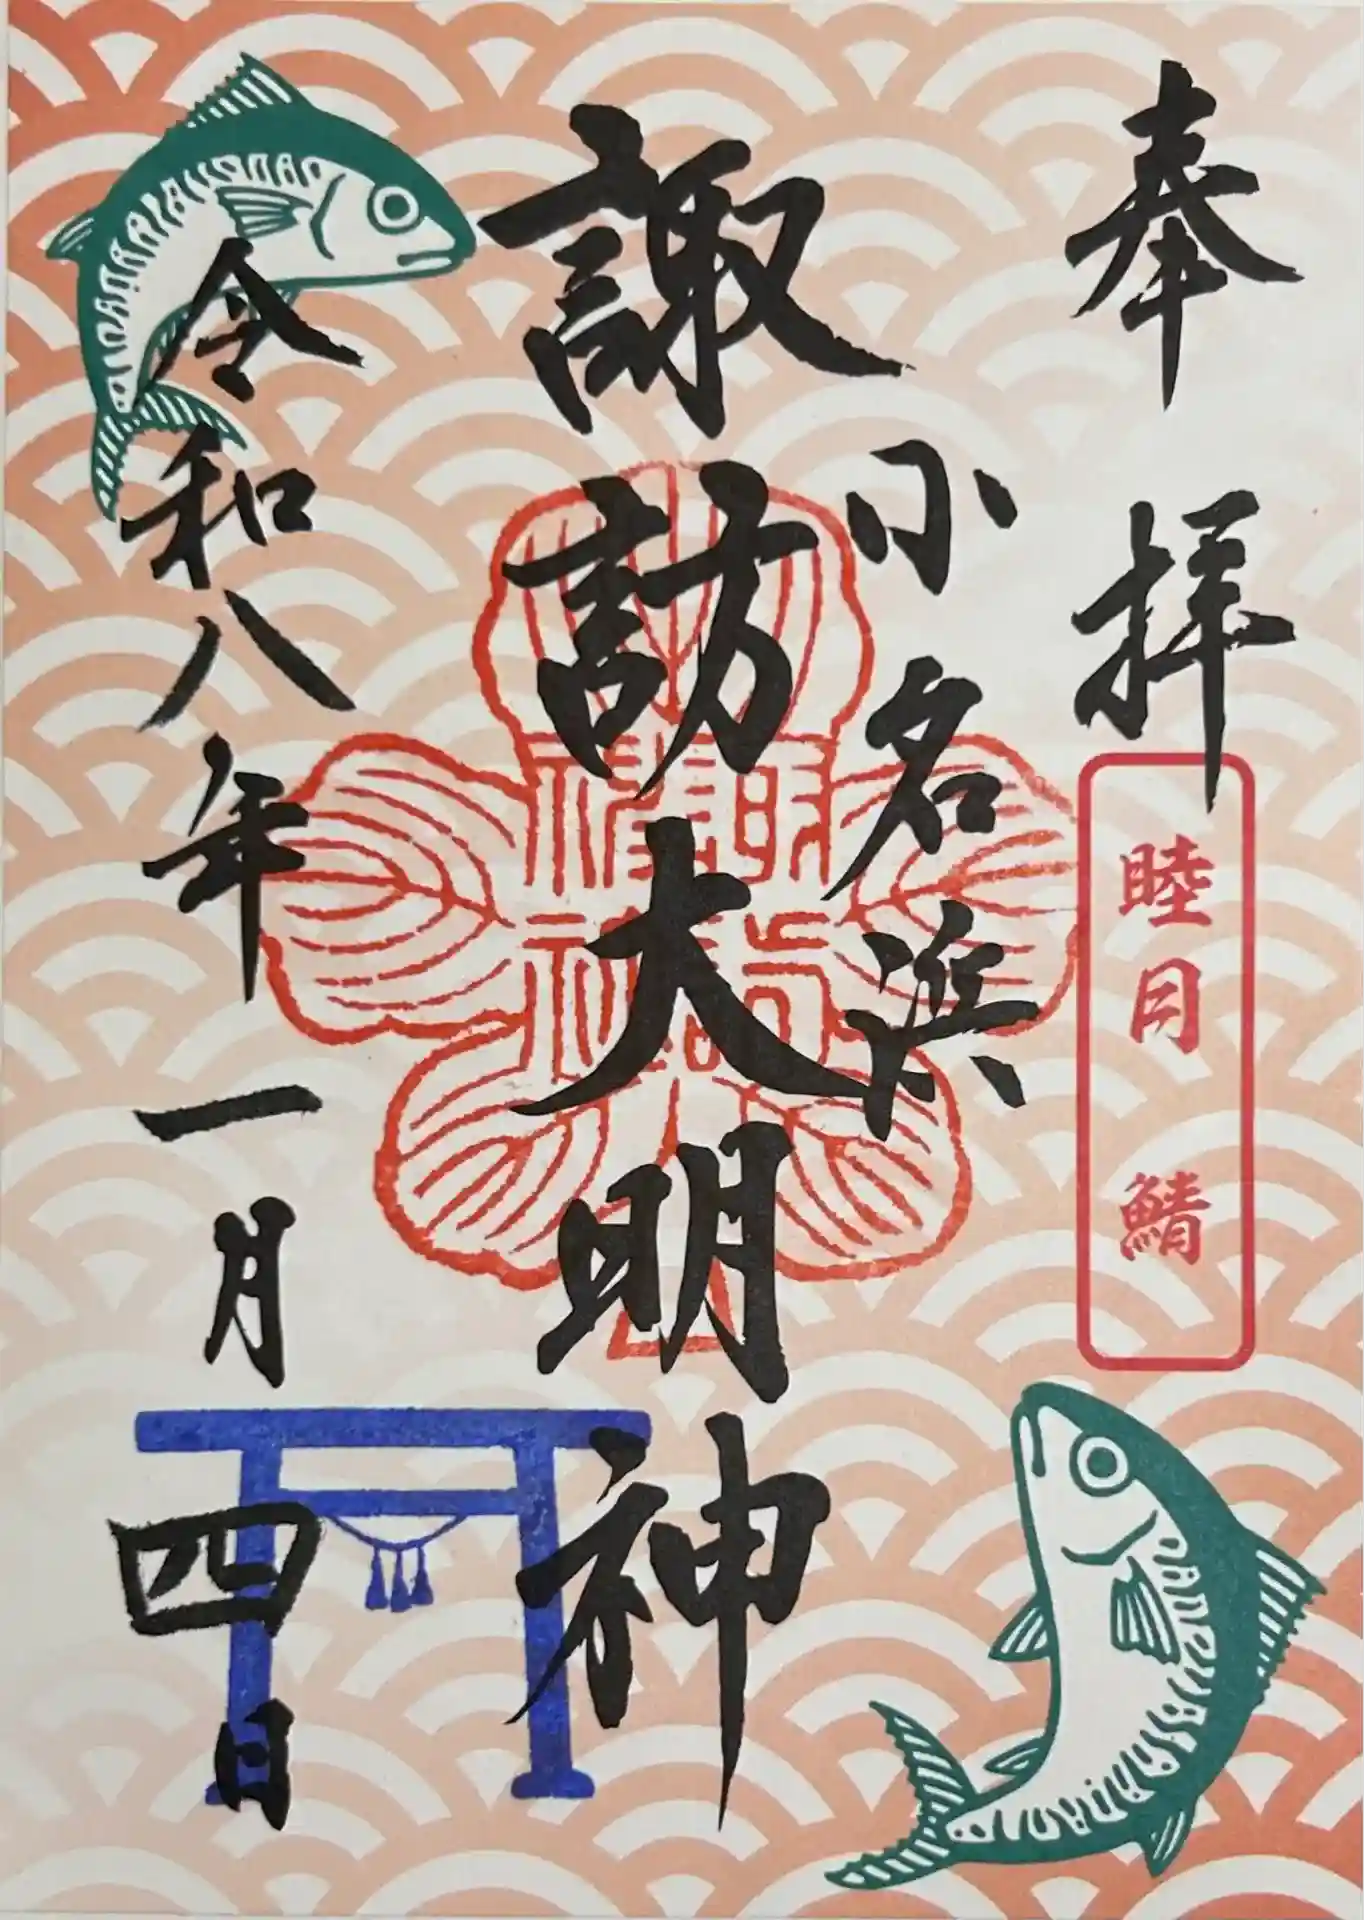 奉拝
睦月 鯖
小名浜
諏訪大明神
令和八年一月四日